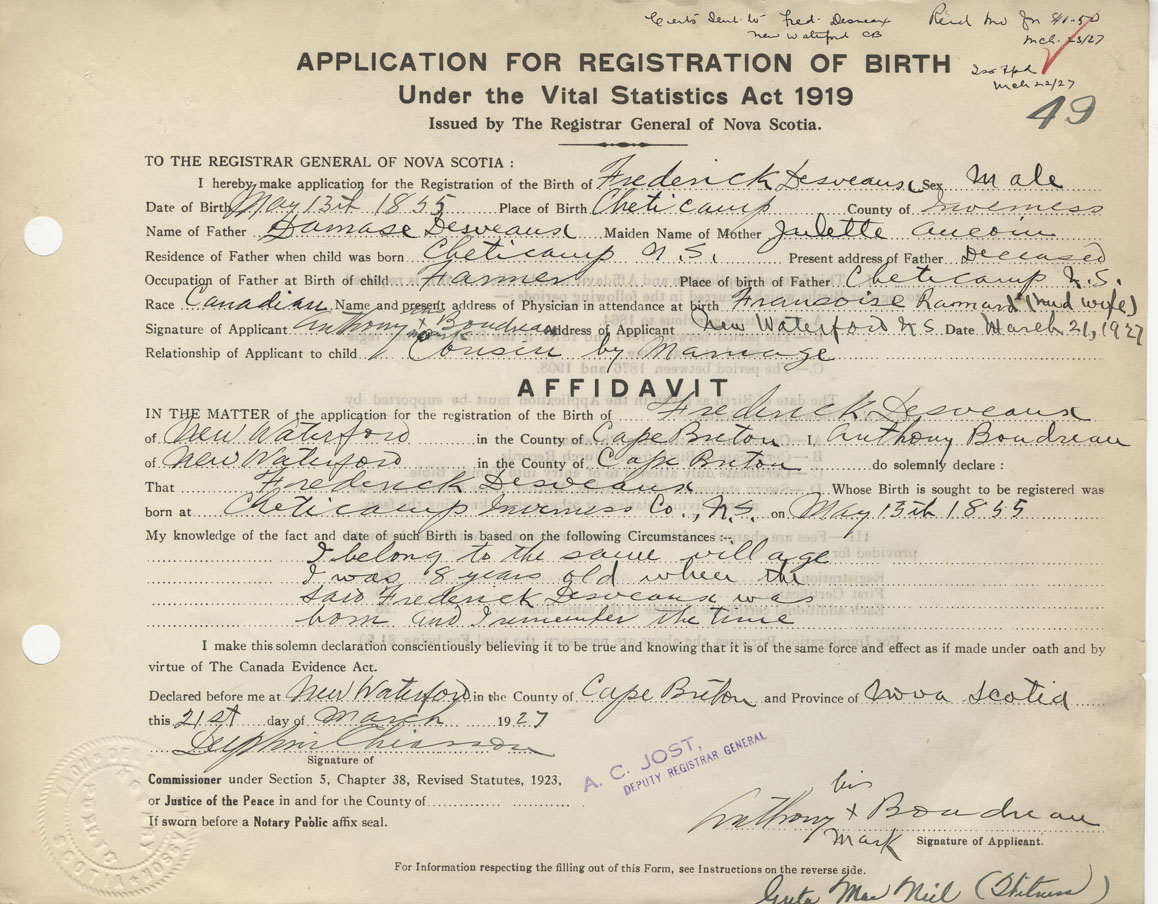 Certs Sent to Fred. Desveaux
New Waterford CB
Mch. 23/27
Mch 22/27
49
APPLICATION FOR REGISTRATION OF BIRTH
Under the Vital Statistics Act 1919
Issued by The Registrar General of Nova Scotia.
TO THE REGISTRAR GENERAL OF NOVA SCOTIA :
I hereby make application for the Registration of the Birth of Frederick Desveaux Sex Male
Date of Birth May 13th 1855 Place of Birth Cheticamp County of Inverness
Name of Father Damase Desveaux Maiden Name of Mother Julette Aucoin
Residence of Father when child was born Cheticamp N.S. Present address of Father Deceased
Occupation of Father at Birth of child Farmer Place of birth of Father Cheticamp N.S.
Race Canadian Name and present address of Physician in attendance at birth Fransoise Ramard (mid wife)
Signature of Applicant Anthony x Boudreau Address of Applicant New Waterford N.S. Date March 21, 1927
Relationship of Applicant to child Cousin by Marriage
AFFIDAVIT
IN THE MATTER of the application for the registration of the Birth of Frederick Desveaux
of New Waterford in the County of Cape Breton I, Anthony Boudreau
of New Waterford in the County of Cape Breton do solemnly declare :
That Frederick Desveaux Whose Birth is sought to be registered was
born at Cheticamp Inverness Co., N.S. on May 13th 1855
My knowledge of the fact and date of such Birth is based on the following Circumstances :-
I belong to the same village
I was 8 years old when the
said Frederick Desveaux was
born and I remember the time
I make this solemn declaration conscientiously believing it to be true and knowing that it is of the same force and effect as if made under oath and by
virtue of The Canada Evidence Act.
Declared before me at New Waterford in the County of Cape Breton and Province of Nova Scotia
this 21st day of March 1927
Delphin Chiasson
Signature of
Commissioner under Section 5, Chapter 38, Revised Statutes, 1923,
or Justice of the Peace in and for the County of
If sworn before a Notary Public affix seal.
A. C. JOST,
DEPUTY REGISTRAR GENERAL
his
Anthony x Boudreau
Mark Signature of Applicant.
For Information respecting the filling out of this Form, see Instructions on the reverse side.
Greta MacNeil (Witness)